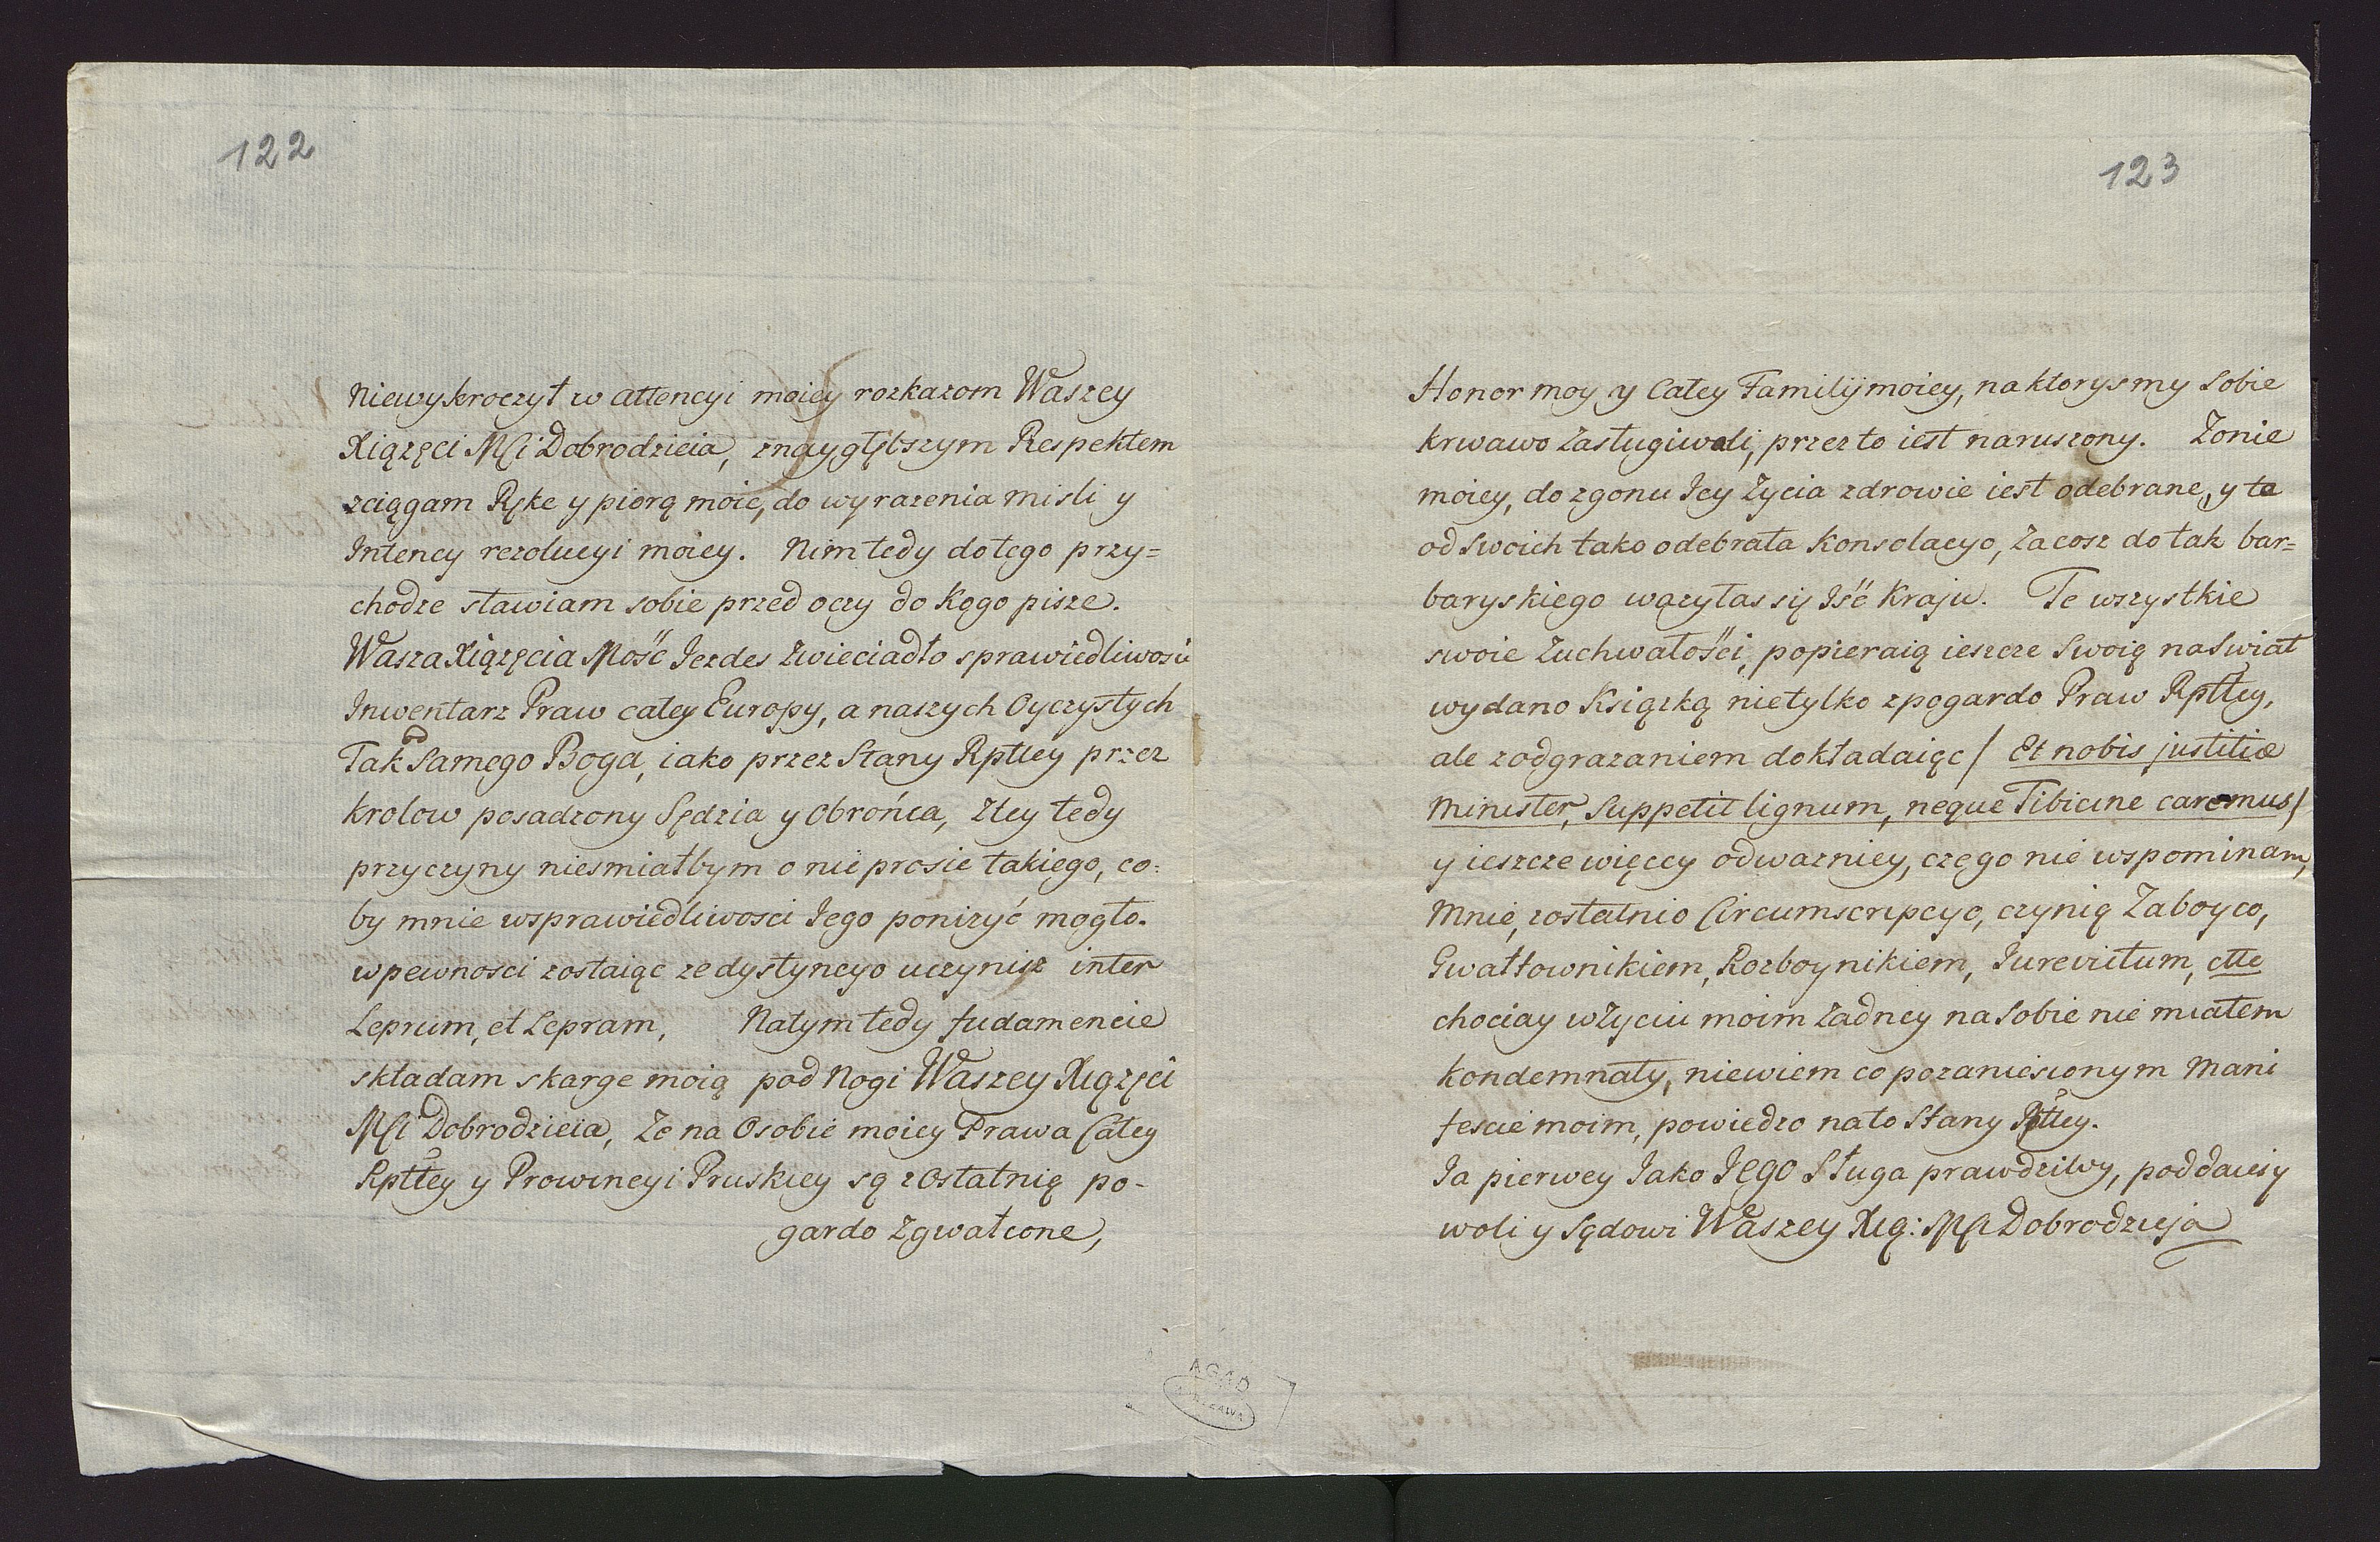 122
Niewykroczył w attencyi moiey rozkazom Waszey
Xiążęci Mści Dobrodzieia, znaygłębszym Respektem
sciągam Rękę y piorą moię, do wyrazenia misli y
Intency rezolucyi moiey. Nim tedy do tego przy=
chodze stawiam sobie przed oczy do kogo pisze.
Wasza Xiążęcia Mość Jezdes Zwieciadło sprawiedliwosci
Inwentarz Praw całey Europy, a naszych Oyczystych
Tak od Samego Boga, iako przez Stany Rpttey przez
krolow posadzony Sędzia y Obrońca, Złey tedy
przyczyny niesmiałbym o nie prosic takiego, co=
by mnie wsprawiedliwosci Jego ponizyć mogło.
wpewnosci zostaiąc ze dystyncyo uczynisz inter
Leprum, et Lepram, Natym tedy fudamencie
składam skarge moią pod Nogi Waszey Xiążęci
Mści Dobrodzieia, Ze na Osobie moiey Prawa Całey
Rpttey y Prowincyi Pruskiey są zostatnią po-
gardo Zgwałcone,
AGAD
WARSZAWA
123
Honor moy y Całey Familij moiey, na ktorysmy Sobie
krwawo Zasługiwali, przez to iest naruszony. Zonie
moiey, do zgonu Jey Zycia zdrowie iest odebrane, y ta
od Swoich tako odebrała Konsolacyo, Zacosz do tak bar=
baryskiego wazyłas się Iść Kraju. Te wszystkie
swoie Zuchwałości, popieraią ieszcze Swoią na Swiat
wydano Ksiązką nietylko zpogardo Praw Rpttey,
ale zodgrazaniem dokładaiąc / Et nobis justitiæ
Minister, Suppetit lignum, neque Tibicine caremus /
y ieszcze więccy odwazniey, czego nie wspominam,
Mnie, zostatnio Circumscripcyo, czynią Zaboyco,
Gwałtownikiem, Rozboynikiem, Jurevictum, ettc
chociay wZyciu moim Zadney na Sobie nie miałem
kondemnaty, niewiem co pozaniesionym Mani
fescie moim, powiedzo na to Stany Rpttey.
Ja pierwey Jako JEGO Sługa prawdziwy, poddaiesię
woli y Sądowi Waszey Xią: Mści Dobrodzieja